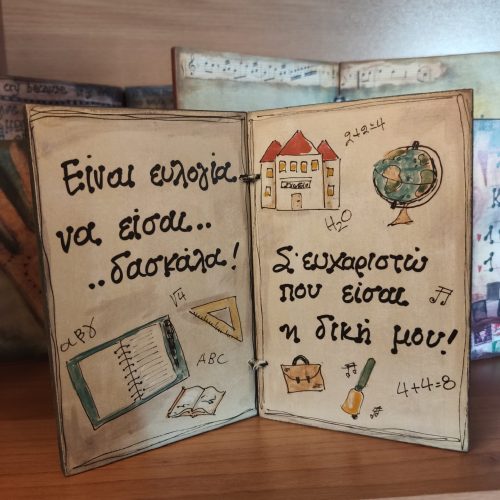 Είναι ευλογία
να είσαι..
..δασκάλα!
αβγ
√4
ABC
2+2=4
Σχολείο
H2O
Σ'ευχαριστώ
που είσαι
η δική μου!
4+4=8